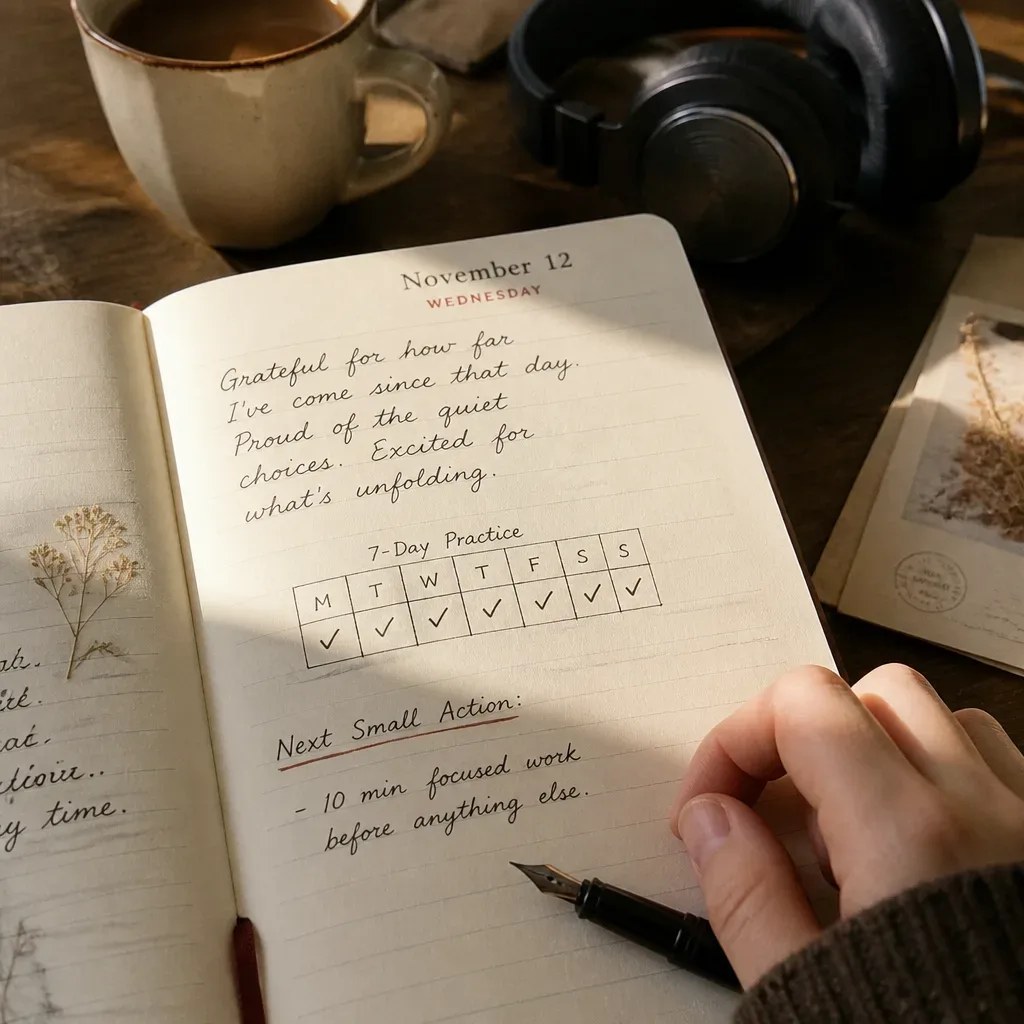 time.
November 12
WEDNESDAY
Grateful for how far
I've come since that day.
Proud of the quiet
choices. Excited for
what's unfolding.
7-Day Practice
M T W T F S S
✓ ✓ ✓ ✓ ✓ ✓ ✓
Next Small Action:
- 10 min focused work
before anything else.